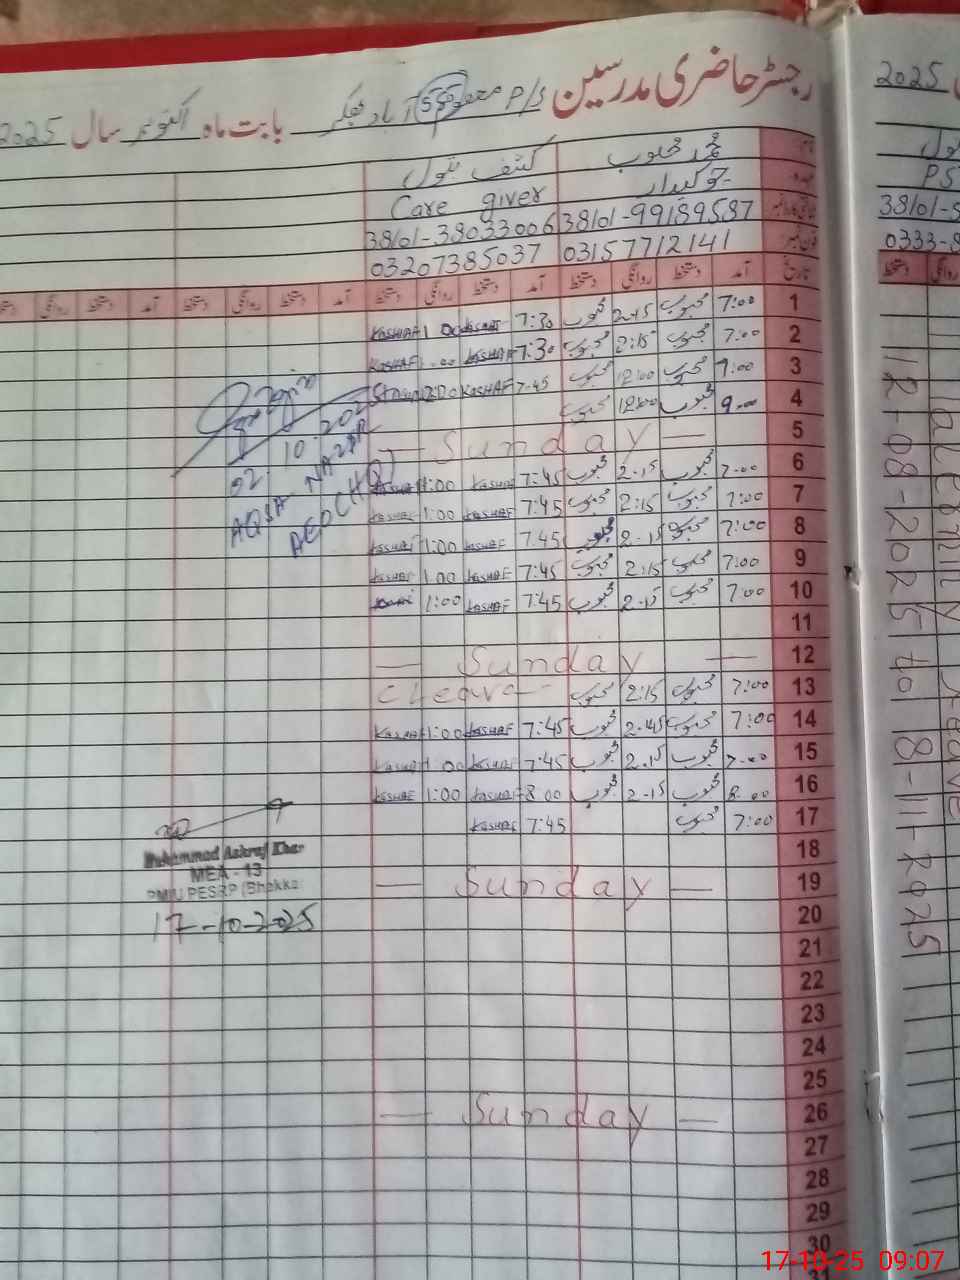 رجسٹر حاضری مدرسین P/S آباد بھکر بابت ماہ اکتوبر سال 2025
نام محمد محبوب کشف بتول
عہدہ چوکیدار Care giver
شناختی کارڈ نمبر 38101-99189587 38101-38033006
فون نمبر 03157712141 03207385037
تاریخ آمد دستخط روانگی دستخط آمد دستخط روانگی دستخط آمد دستخط روانگی دستخط آمد دستخط روانگی دستخط
1 7:00 محبوب 2:15 محبوب 7:30 KASHAF 1:00 KASHAF
2 7:00 محبوب 2:15 محبوب 7:30 KASHAF 1:00 KASHAF
3 9:00 محبوب 12:00 محبوب 7:45 KASHAF 12:00
4 9:00 محبوب 12:00 محبوب
5 — Sunday —
6 7:00 محبوب 2:15 محبوب 7:45 KASHAF 1:00 KASHAF
7 7:00 محبوب 2:15 محبوب 7:45 KASHAF 1:00 KASHAF
8 7:00 محبوب 2:15 محبوب 7:45 KASHAF 1:00 KASHAF
9 7:00 محبوب 2:15 محبوب 7:45 KASHAF 1:00 KASHAF
10 7:00 محبوب 2:15 محبوب 7:45 KASHAF 1:00
11
12 — Sunday —
13 7:00 محبوب 2:15 محبوب
14 7:00 محبوب 2:45 محبوب 7:45 KASHAF 1:00 KASHAF
15 7:00 محبوب 2:15 محبوب 7:45 KASHAF 1:00 KASHAF
16 8:00 محبوب 2:15 محبوب 8:00 KASHAF 1:00 KASHAF
17 7:00 محبوب 7:45 KASHAF
18
19 — Sunday —
20
21
22
23
24
25
26 — Sunday —
27
28
29
30
31
02.10.202
AQSA NAZIR
AEO CHQ
Muhammad Ashraf Khan
MEA - 13
PMIU PESRP (Bhakka
17-10-2025
2025
PS
38101-5
0333-8
دستخط روانگی
Maternity Leave
12-08-2025 to 18-11-2025
17-10-25 09:07